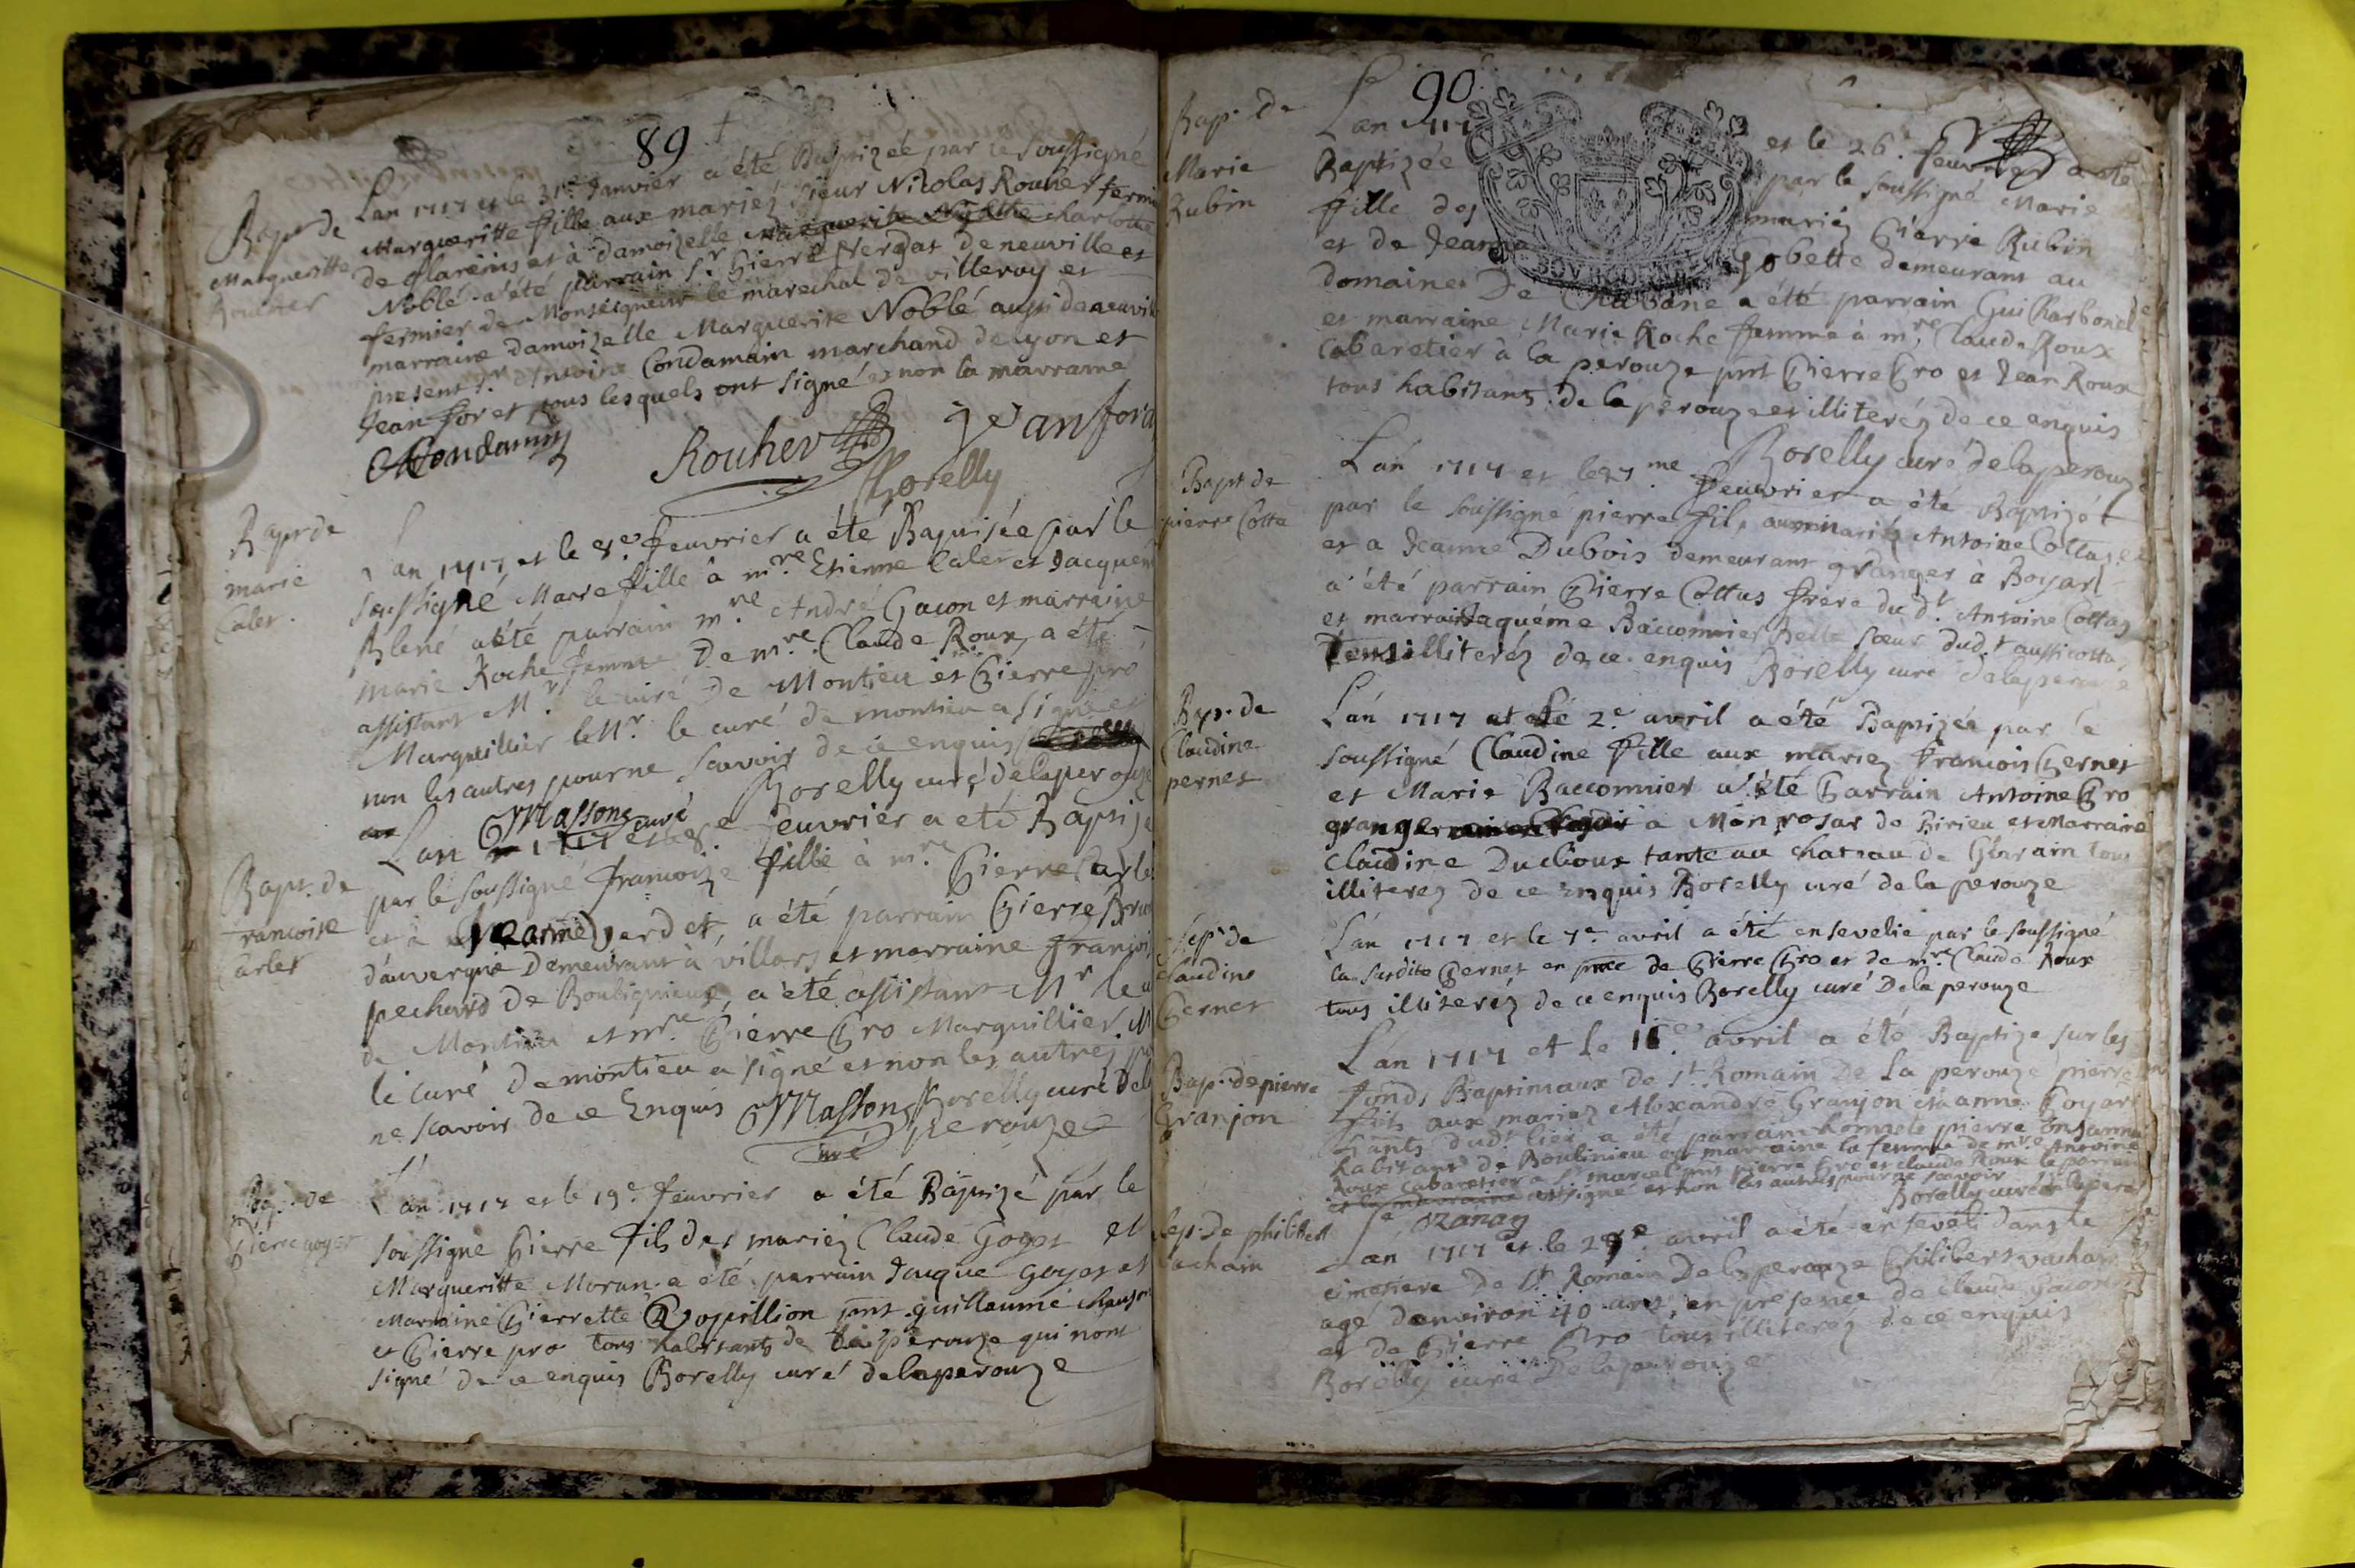 89
Bapt de
Margueritte
Roucher
Lan 1717 et le 31e Janvier a été Baptizée par le soussigné
Margueritte fille aux mariéz sieur Nicolas Rouher fermi
de glareins et à damoizelle Charlotte
Noblé a été parrain Sr Pierre Vergat de neuville et
fermier de Monseigneur le marechal de villeroy et
marraine damoizelle Marguerite Noblé aussi de neuvil
present Sr Antoine Condamin marchand de lyon et
Jean foret tous lesquels ont signé et non la marraine
Condamin
Rouher
Jean fora
Borelly
Bapt de
marie
Calet.
Lan 1717 et le 8e feuvrier a été Baptisée par le
soussigné Marie fille à mre Etienne Calet et Jacquem
Blené a été parrain mre André Gacon et marraine
marie Roche femme De mre Claude Roux, a été
assistant Mr le curé de Montieu et Pierre pro
Marguillier le Mr. le curé de montieu a signé et
non les autres pour ne scavoir de ce enquis
Borelly curé de laperouze
Massons curé
Bapt. de
francoise
Carlet
Lan 1717 et le 8e feuvrier a eté Baptize
par le soussigné francoize fille à mre Pierre Carle
et à Jeanne verdet, a été parrain Pierre
dauvergne Demeurant à villars et marraine françoi
pechard de Bouligneux, a été assistant Mr le
de Montieu et mre. Pierre Pro Marguillier. M
le curé de montieu a signé et non les autres
ne scavoir de ce Enquis Massons Borelly curé Del
curé perouze
Bap. de
Pierre goyet
Lan 1717 et le 19e feuvrier a été Baptizé par le
soussigné Pierre fils des mariéz Claude Goyet et
Margueritte Moran a été parrain Jaque goyet et
Marraine Pierrette Vopillion pnt guillaume
et Pierre pro tous habitants de la perouze qui nont
signé de ce enquis Borelly curé de laperouze
90
Bap. de
Marie
Rubin
Lan 1717 et le 26e feuvrier a été
Baptizée par le soussigné Marie
fille des mariéz Pierre Rubin
et de Jeanne Gobette demeurant au
domaine De Chabane a été parrain Gui Charbonel
et marraine Marie Roche femme à mre Claude Roux
Cabaretier à la perouze pnt Pierre Pro et Jean Roux
tous habitans de la perouze et illiteréz de ce enquis
Borelly curé de laperouze
BOURGOGNE
Bapt de
pierre Cotta
Lan 1717 et le 27me feuvrier a été Baptizé
par le soussigné pierre fils aux mariéz Antoine Cottas
et a Jeanne Dubois demeurant granger à Boyar
a été parrain Pierre Cottas frere du dt Antoine Cottas
et marraine Jaquéme Bacconnier Belle sœur dud.t aussi cotta
tous illiteréz de ce enquis Borelly curé de laperouze
Bap. de
Claudine
pernet
Lan 1717 et le 2e avril a été Baptizée par le
soussigné Claudine fille aux mariez francois Pernet
et Marie Bacconnier a été Parrain Antoine Pro
granger a Mon rosar de Birieu et Marraine
Claudine Duclioux tante au chateau de Glarain tous
illiterez de ce Enquis Borelly curé de la perouze
sépt de
claudine
Pernet
Lan 1717 et le 7e avril a été ensevelie par le soussigné
la susdite Pernet en pnce de Pierre Pro et de mre Claude Roux
tous illiteréz de ce enquis Borelly curé De la perouze
Bap. de pierre
Granjon
Lan 1717 et le 16e avril a été Baptize sur les
fonds Baptimaux de st Romain De la perouze pierre
fils aux mariez Alexandre Granjon et anne Goyat
dudt lieu a été parrain honnete pierre
habitant de Boulinieu et marraine la femme de mre Antoine
Roux cabaretier a St marcel pnt pierre Pro et claude Roux le parrain
a signé et non les autres pour ne scavoir
Borelly curé de laperou
Ozanan
Sep. de philibert
Vachain
Lan 1717 et le 28e avril a été enseveli dans le
cimetiere De St Romain De la perouze Philibert vachain
agé denviron 40 ans, en presence de claude gacon
et de Pierre Pro tous illiteréz de ce enquis
Borelly curé De laperouze